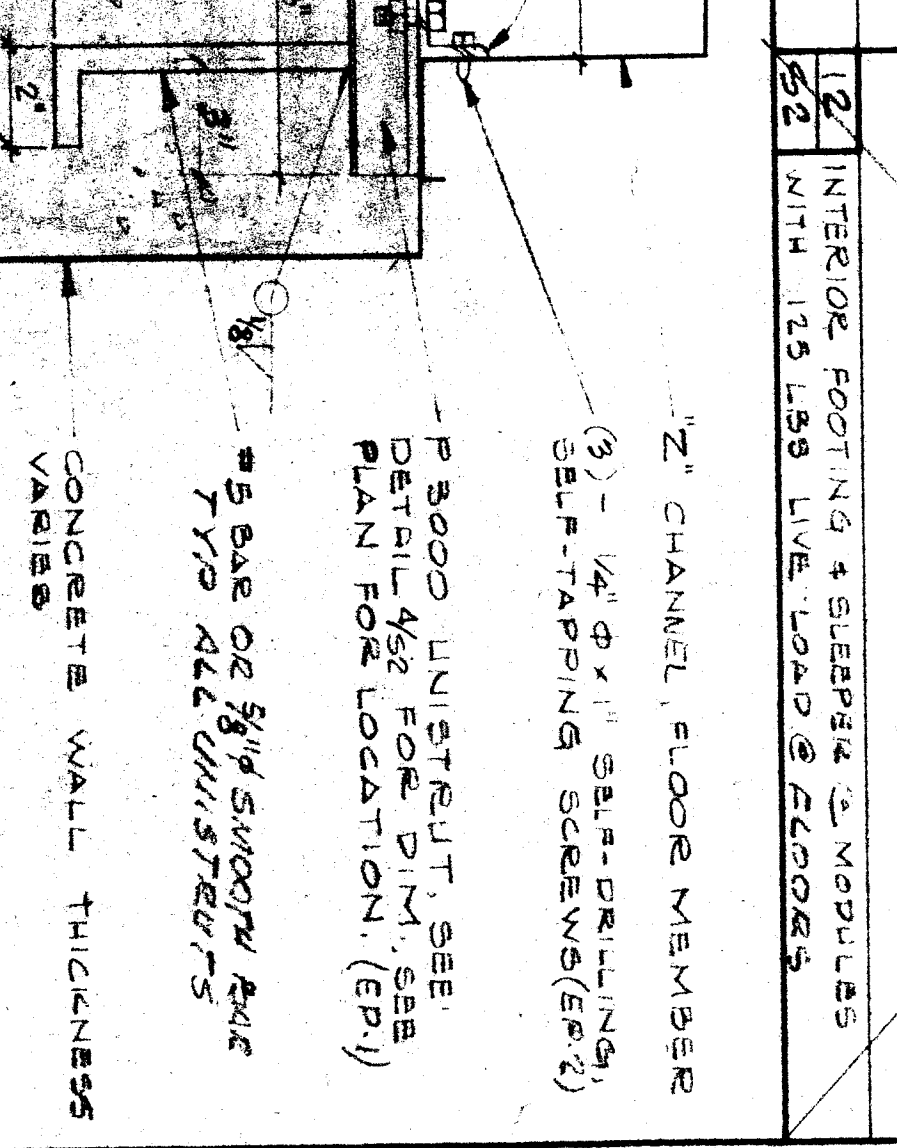 12
S2
INTERIOR FOOTING & SLEEPER @ MODULES
WITH 125 LBS LIVE LOAD @ FLOORS
"Z" CHANNEL, FLOOR MEMBER
(3) - 1/4" Φ x 1" SELF-DRILLING,
SELF-TAPPING SCREWS (EP.2)
P 3000 UNISTRUT, SEE
DETAIL 4/S2 FOR DIM., SEE
PLAN FOR LOCATION. (EP.1)
1/8
#5 BAR OR 5/8" Φ SMOOTH BAR
TYP ALL UNISTRUTS
CONCRETE WALL THICKNESS
VARIES
3"
2"